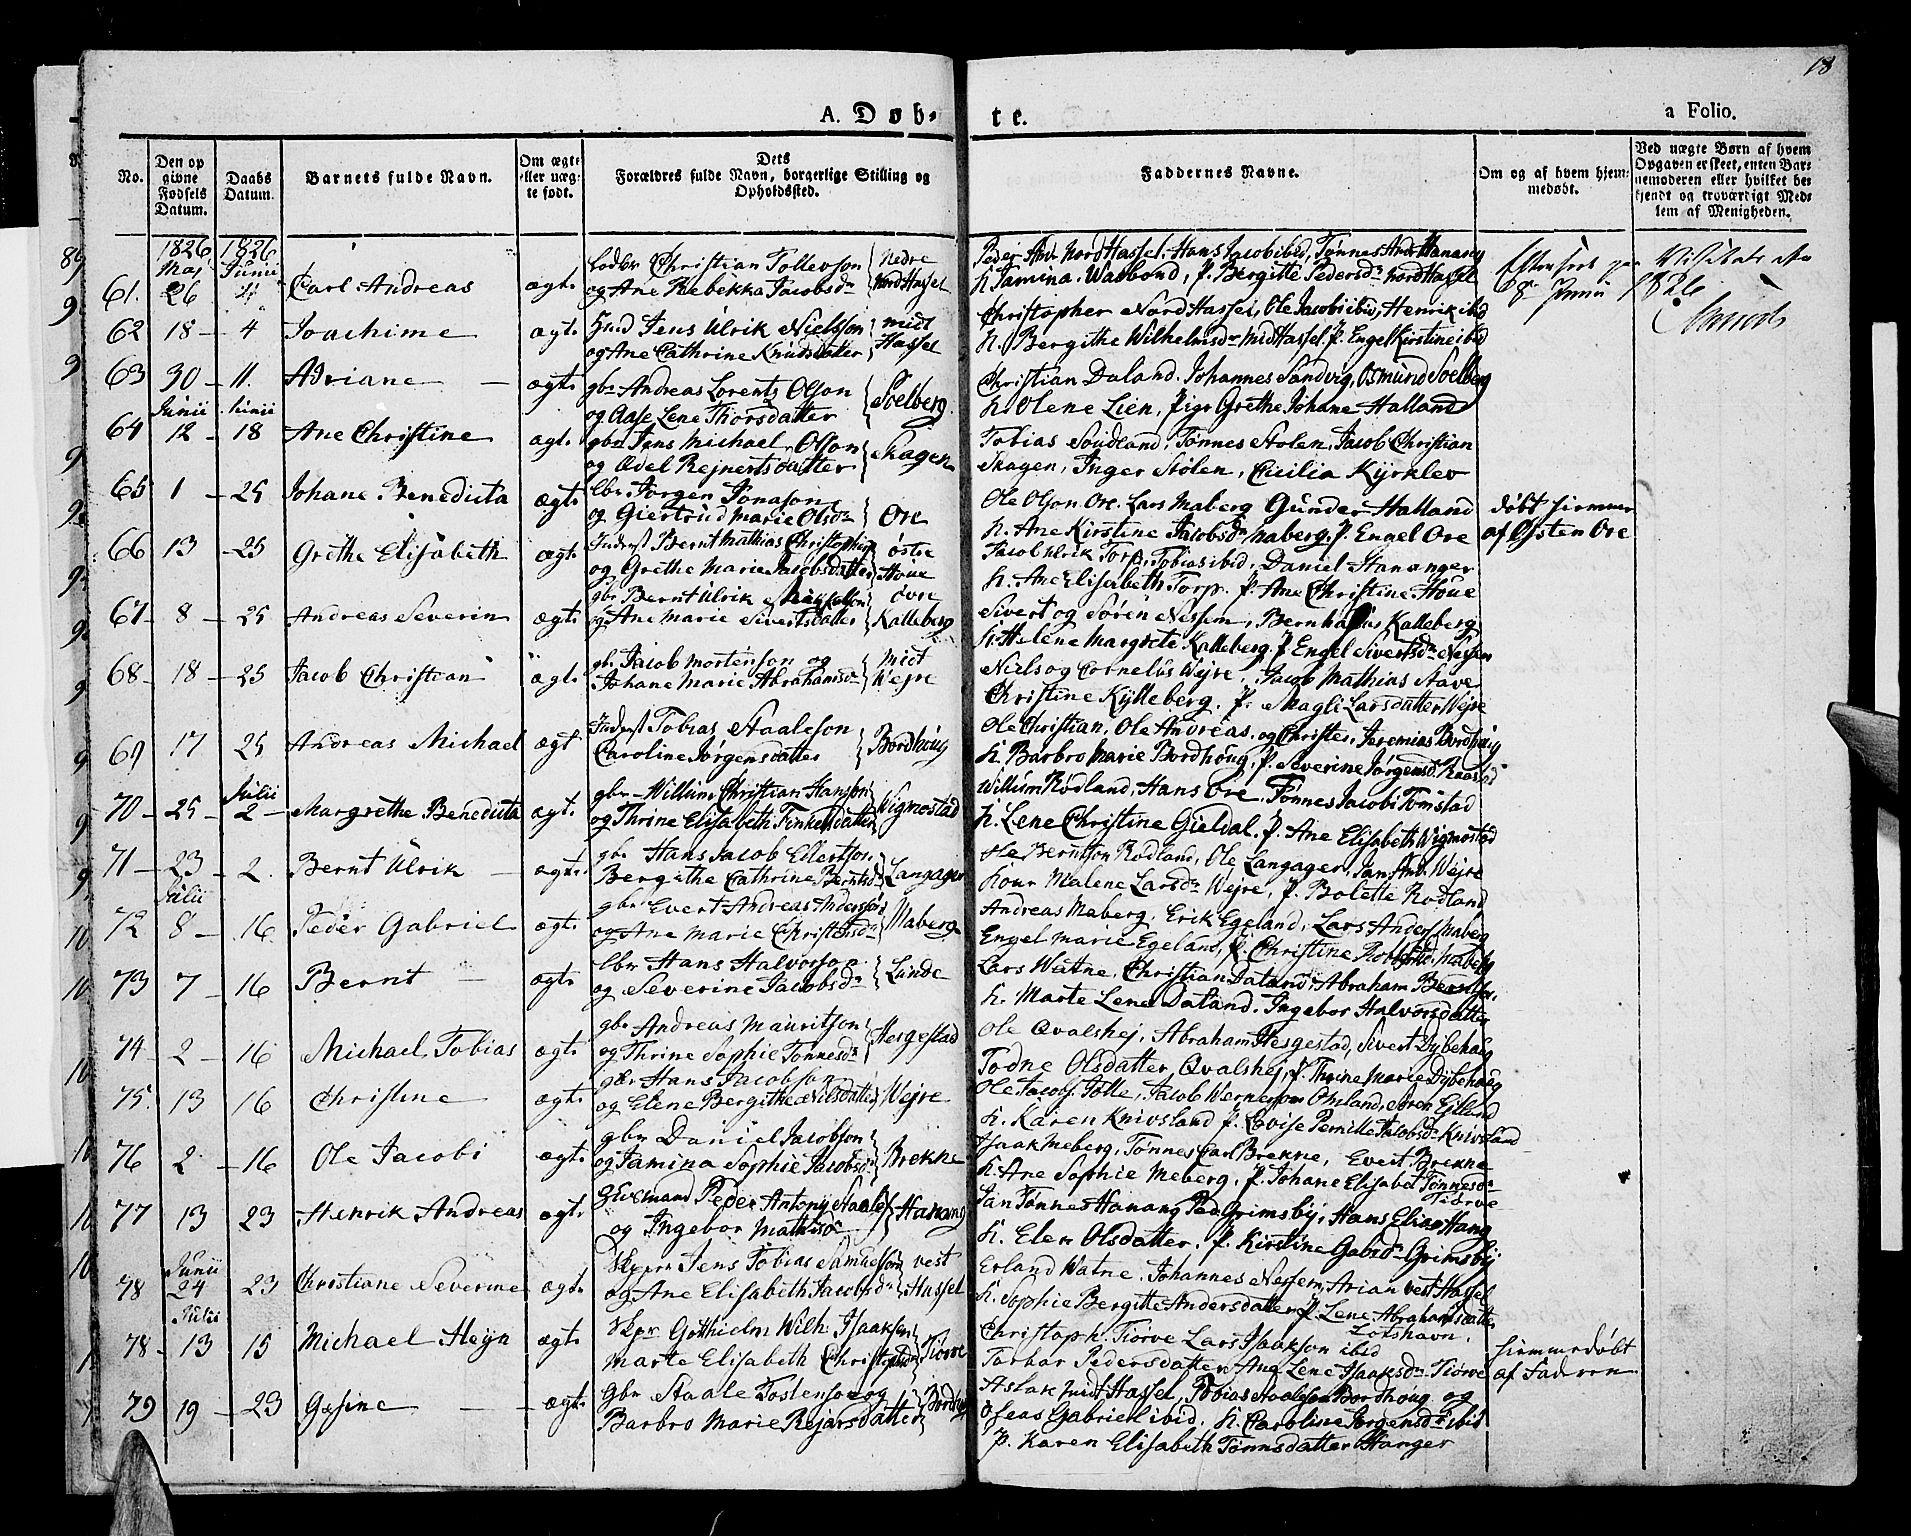 18
A. Døb- te. a Folio.
No.
Den opgivne Fødsels Datum.
Daabs Datum.
Barnets fulde Navn.
Om ægte eller uægte født.
Dets Forældres fulde Navn, borgerlige Stilling og Opholdssted.
Faddernes Navne.
Om og af hvem hjemmedøbt.
Ved uægte Børn af hvem Opgaven er skeet, enten Barnemoderen eller hvilket bekjendt og troværdigt Medlem af Menigheden.
1826 Maj 1826 Junii
61. 26 4 Carl Andreas ægt. Christian Tollevson og Ane Rebekka Jacobsdr Nedre Nord Hassel
Peder And. Nord Hassel, Hans Jacob ibid, Tønnes And. Hanang
K. Tamina Watbond, P. Bergitte Pedersdr Nord Hassel
8de Junii 1826
62 18 - 4 Joachime ægt. Jens Ulrik Nielsson og Ane Cathrine Knudsdatter midt Hassel
Christopher Nord Hassel, Ole Jacob ibid, Henrik ibid
K. Bergithe Wilhelmsdr Mid Hassel, P. Engel Kirstine ibid
63 30 - 11. Adriane ægt. gbr Andreas Lorentz Olson og Aase Lene Thorsdatter Soelberg
Christian Daland. Johannes Sandvig, Osmund Soelberg
K. Olene Lien, Pige Grethe Johane Halland
Junii Junii
64 12 - 18 Ane Christine ægt. gbr Jens Michael Olson og Ædel Rejnertsdatter Skagen
Tobias Soudland, Tønnes Stolen, Jacob Christian
Skagen, Inger Stolen, Cicilia Kyrklev
65 1 - 25 Johane Benedicta ægt. Jørgen Jonason og Giertrud Marie Olsdr Ore
Ole Olson Ore. Lars Maberg Gunder Halland
K. Ane Kirstine Jacobsdr Maberg, P. Engel Ore
døbt hiemme af Østen Ore
66 13 - 25 Grethe Elisabeth ægt. Inderst Bernt Mathias Christophs og Grethe Marie Jacobsdatter østre Houe
Jacob Ulrik Torp, Tobias ibid, Daniel Hananger
K. Ane Elisabeth Torp. P. Ane Christine Houe
67 - 8 - 25 Andreas Severin ægt. gbr Bernt Ulrik og Ane Marie Sivertsdatter øvre Kalleberg
Sivert og Søren Nessem, Bernhardus Kalleberg
K. Helene Margrete Kalleberg. P. Engel Sivertsdr Nessem
68 - 18 - 25 Jacob Christian ægt. gbr Jacob Mortenson og Johane Marie Abrahamsdr Midt Wejre
Niels og Cornelus Wejre. Jacob Mathias Stave
Christine Kylleberg. P. Magli Larsdatter Wejre
69 17 25 Andreas Michael ægt Inderst Tobias Staaleson Caroline Jørgensdatter Bordhoug
Ole Christian, Ole Andreas, og Christen, Jeremias Bordhoug
K. Barbro Marie Bordhoug, P. Severine Jørgensd.
Julii
70 - 25 - 2 - Margrethe Benedicta ægt. gbr Willum Christian Hanson og Thrine Elisabeth Finkensdatter Wigmostad
Willum Rødland, Hans Ore, Tønnes Jacobi Tomstad
K. Lene Christine Gieldal. P. Ane Elisabeth Wigmostad
71 - 23 - 2. Bernt Ulrik ægt. gbr Hans Jacob Ellertson Bergithe Cathrine Berntsdr Langager
Ole Berntson Rodland, Ole Langager, Jan And. Wejre
Kour Malene Larsdr Wejre, P. Bolette Rodland
Julii
72 8 - 16 Peder Gabriel ægt. gbr Evert Andreas Anderson og Ane Marie Christensdr Maberg
Andreas Maberg. Erik Egeland, Lars Anders Maberg
Engel Marie Egeland, P. Christine Maberg
73 7 - 16 Bernt ægt. Hans Halvorson og Severine Jacobsdr Lunde
Lars Watne, Christian Datland, Abraham
K. Marte Lene Datland. Ingebor Halvorsdatter
74 2 - 16 Michael Tobias ægt. gbr Andreas Mauritson og Thrine Sophie Tonnesdr Hesgestad
Ole Qvalshej, Abraham Hesgestad, Sivert Dybehoug
Todne Olsdatter Qvalshej, P. Thrine Marie Dybehoug
75. 13 16 Christine ægt. gbr Hans Jacobson og Elene Bergithe Nilsdatter Wejre
Ole Jacobs. Tolle, Jacob Wernerson Omland, Søren Eitland
K. Karen Knivsland P. Lovise Pernille Jacobsdr Knivsland
76 2 - 16 Ole Jacobi ægt. gbr Daniel Jacobson og Tamina Sophie Jacobsdr Brekne
Isaak Meberg, Tønnes Carl Brekne, Evert Brekne
K. Ane Sophie Meberg, P. Johane Elisabet Tønnesdr Tiørve
77 13 23 Henrik Andreas ægt. Peder Antony Staale og Ingebor Mathisdr Hanang
Jan Tønnes Hanang Peder Grimsby, Hans Elias Hang
K. Elen Olsdatter. P. Kirstine Gabrdr Grimsby
Junii
78 24 23 Christiane Severine ægt. Skpr Jens Tobias Samuelson og Ane Elisabeth Jacobsdr vest Hassel
Erland Watne, Johannes Nessem, Arian vest Hassel
K. Sophie Bergitte Andersdatter, P. Lene Abrahamsdatter Lotshavn.
Julii
78 - 13 15 Michael Heyn ægt. Skpr Gothielm Wilh. Isaakson Marte Elisabeth Christophdr Tiorve
Christoph. Tiorve Lars Isaakson ibid
Torbor Pedersdatter Ane Lene Isaaksdr Tiorve
hiemmedøbt af Faderen
79 19 - 23 Gesine ægt. Gbr Staale Tostenson og Barbro Marie Rejarsdatter Bordhoug
Aslak midt Hassel, Tobias Staaleson Bordhoug og
Oseas Gabriel ibid. K. Caroline Jørgensdr ibid
P. Karen Elisabeth Tønnsdatter Hanger